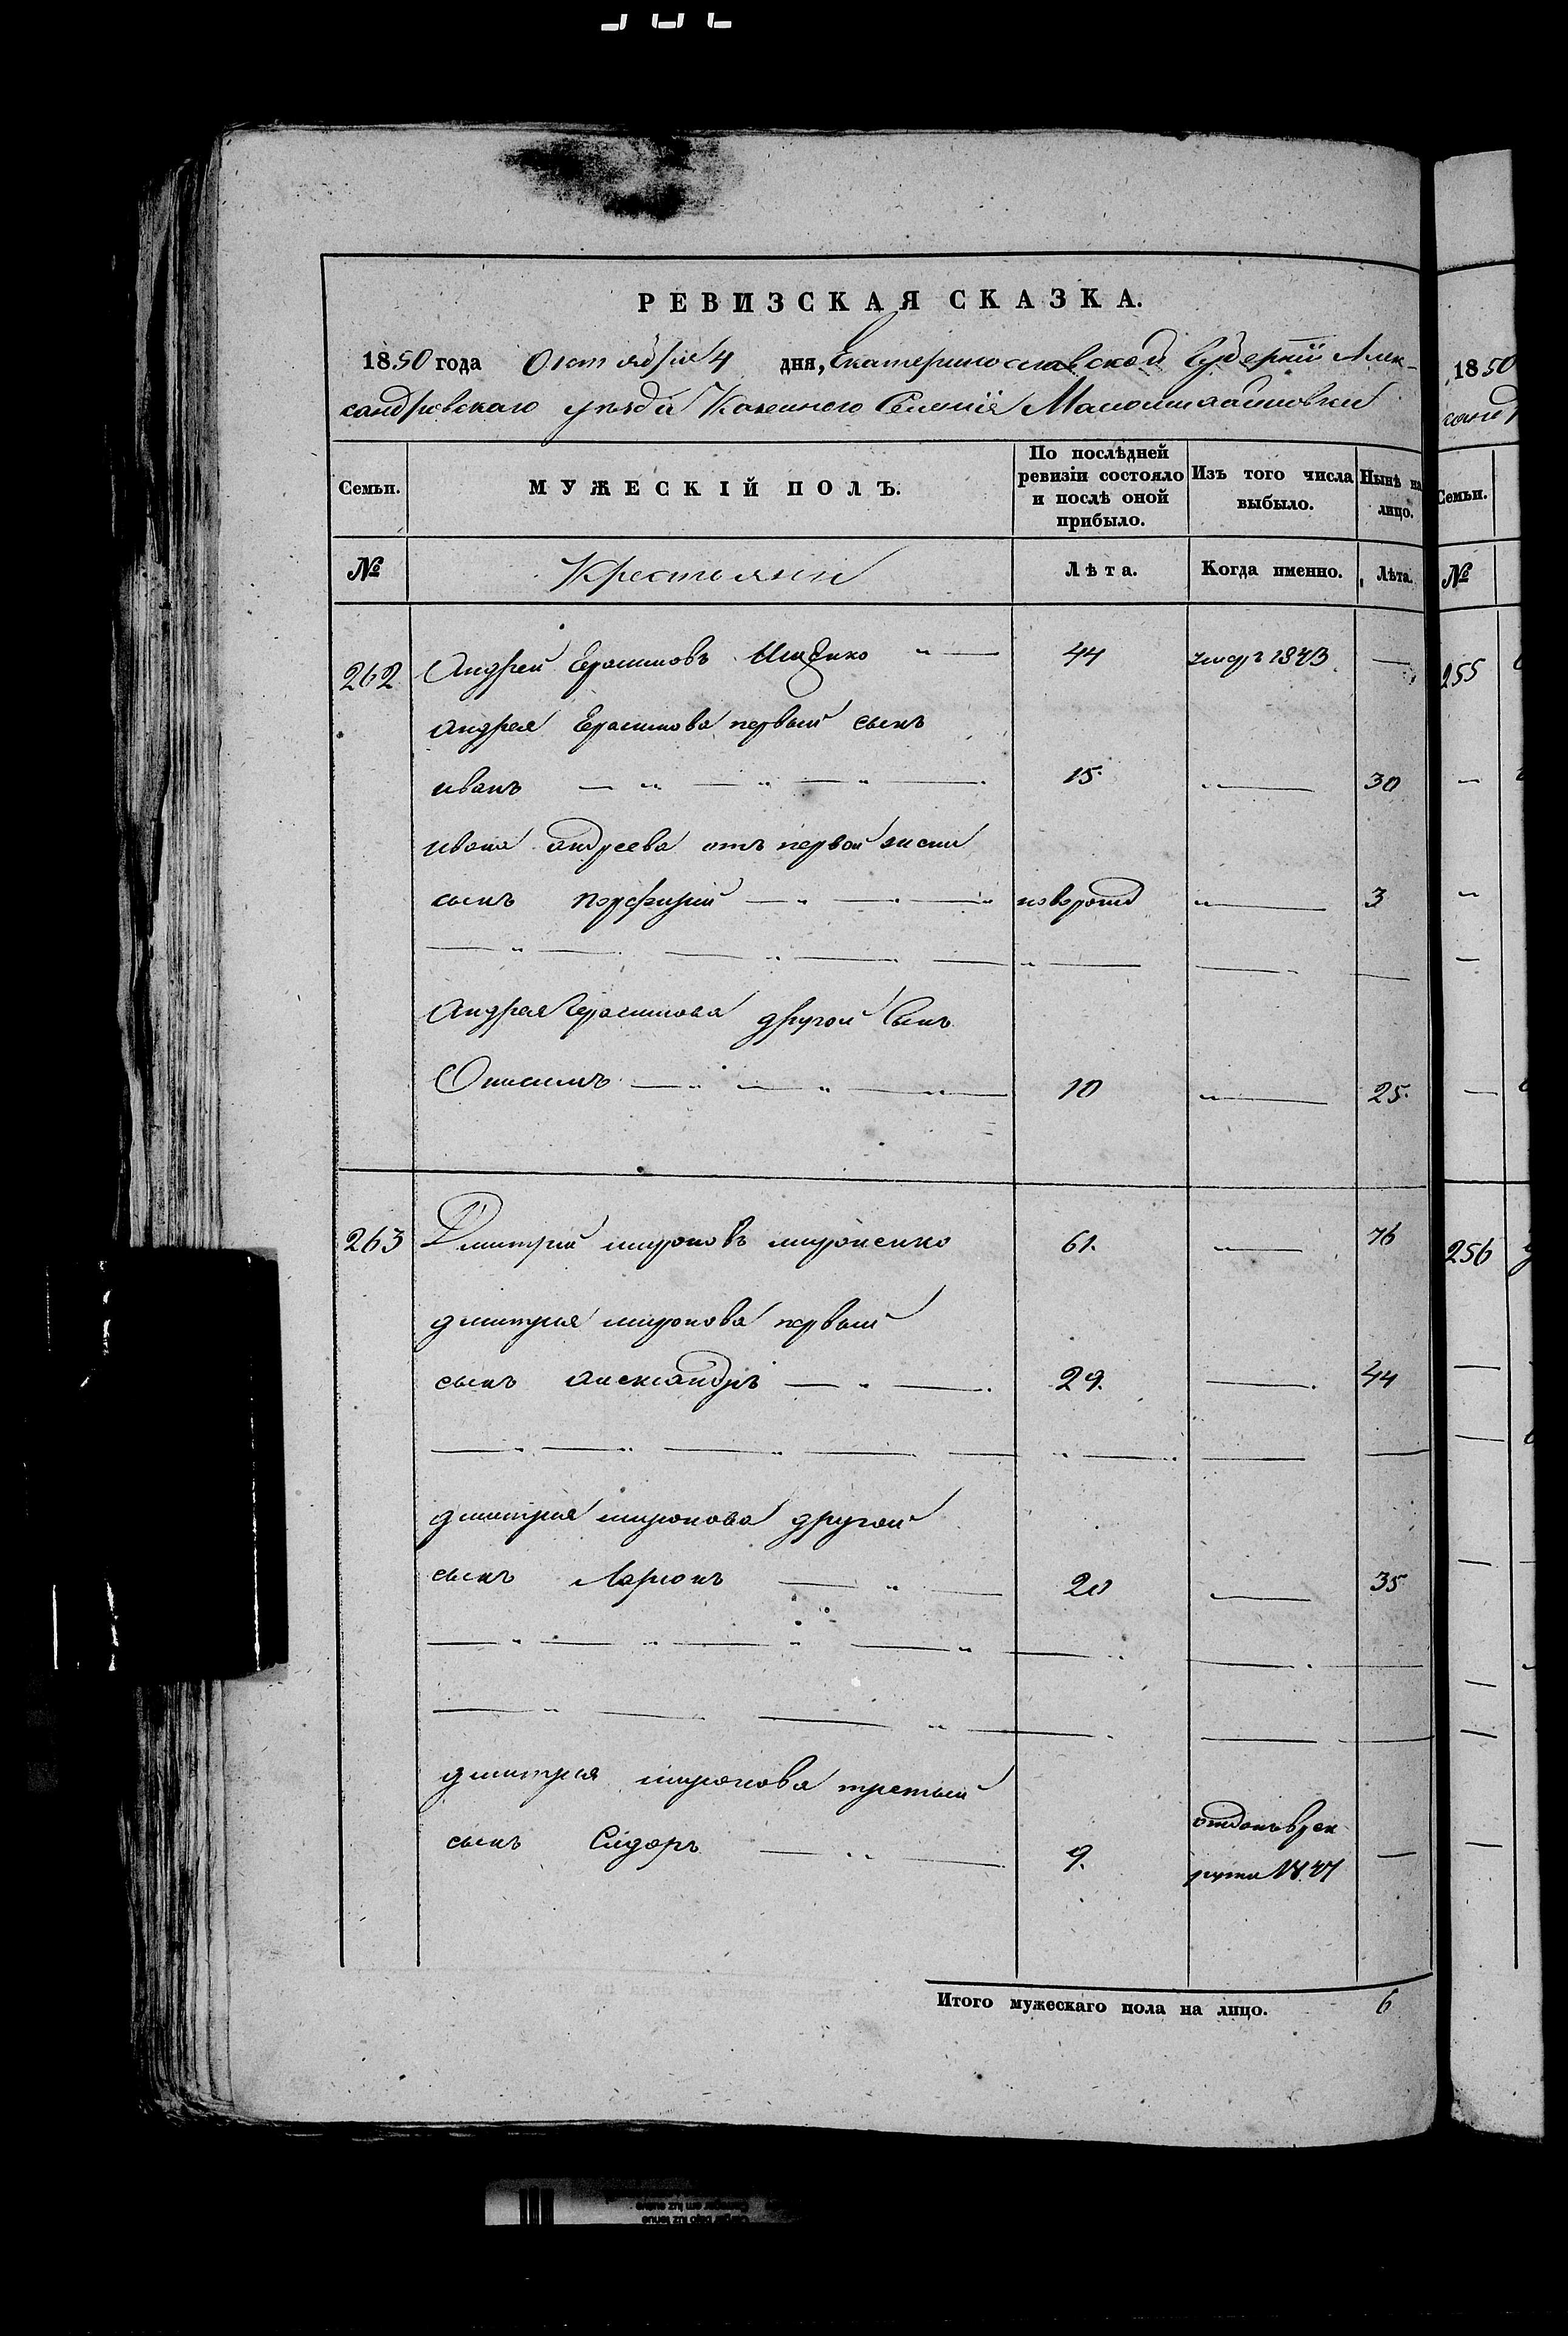 РЕВИЗСКАЯ СКАЗКА.
1850 года Октября 4 дня, Екатеринославской Губернии Алек-
сандровского уезда Казенного Селения Маломихайловки
Семьи. МУЖЕСКІЙ ПОЛЪ. По послѣдней ревизіи состояло и послѣ оной прибыло. Изъ того числа выбыло. Нынѣ на лицо.
№ Крестьяни Лѣта. Когда именно. Лѣта.
262 Андрей Герасимовъ 44 1843 —
андрея Герасимова первый сынъ
иванъ 15. 30
ивана андреева отъ первой жены
сынъ порфирий новорожд 3
Андрея Герасимова другой Сынъ
Онисимъ 10 25.
263 Дмитрий мироновъ мироненко 61. 76
дмитрия миронова первый
сынъ александръ 29. 44
дмитрия миронова другой
сынъ Ларионъ 20 35
дмитрия миронова третий
сынъ Сидоръ 9. отданъ врек
руты —
Итого мужескаго пола на лицо. 6
1850
санд
Семьи.
№
255
256